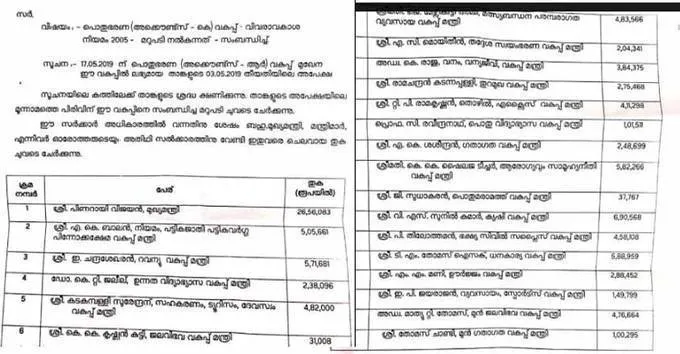 സർ,
വിഷയം :- പൊതുഭരണ (അക്കൗണ്ട്സ് - കെ) വകുപ്പ് - വിവരാവകാശ
നിയമം 2005 - മറുപടി നൽകുന്നത് - സംബന്ധിച്ച്
സൂചന :- 17.05.2019 ന് പൊതുഭരണ (അക്കൗണ്ട്സ് - ആർ) വകുപ്പ് മുഖേന
ഈ വകുപ്പിൽ ലഭ്യമായ താങ്കളുടെ 03.05.2019 തീയതിയിലെ അപേക്ഷ
സൂചനയിലെ കത്തിലേക്ക് താങ്കളുടെ ശ്രദ്ധ ക്ഷണിക്കുന്നു. താങ്കളുടെ അപേക്ഷയിലെ
മൂന്നാമത്തെ പിരിവിന് ഈ വകുപ്പിനെ സംബന്ധിച്ച മറുപടി ചുവടെ ചേർക്കുന്നു.
ഈ സർക്കാർ അധികാരത്തിൽ വന്നതിനു ശേഷം ബഹു.മുഖ്യമന്ത്രി, മന്ത്രിമാർ,
എന്നിവർ ഓരോത്തരുടെയും അതിഥി സൽക്കാരത്തിനു വേണ്ടി ഇതുവരെ ചെലവായ തുക
ചുവടെ ചേർക്കുന്നു.
ക്രമ നമ്പർ പേര് തുക (രൂപയിൽ)
1 ശ്രീ. പിണറായി വിജയൻ, മുഖ്യമന്ത്രി 26,56,083
2 ശ്രീ. എ. കെ. ബാലൻ, നിയമം, പട്ടികജാതി പട്ടികവർഗ്ഗ
പിന്നോക്കക്ഷേമ വകുപ്പ് മന്ത്രി 5,05,661
3 ശ്രീ. ഇ. ചന്ദ്രശേഖരൻ, റവന്യൂ വകുപ്പ് മന്ത്രി 5,71,681
4 ഡോ. കെ. റ്റി. ജലീല്‍, ഉന്നത വിദ്യാഭ്യാസ വകുപ്പ് മന്ത്രി 2,38,096
5 ശ്രീ. കടകമ്പള്ളി സുരേന്ദ്രന്‍, സഹകരണം, ടൂറിസം, ദേവസ്വം
വകുപ്പ് മന്ത്രി 4,82,000
6 ശ്രീ. കെ. കെ. കൃഷ്ണൻ കുട്ടി, ജലവിഭവ വകുപ്പ് മന്ത്രി 31,008
മത്സ്യബന്ധന പരമ്പരാഗത
വ്യവസായ വകുപ്പ് മന്ത്രി 4,83,566
ശ്രീ. എ. സി. മൊയ്തീൻ, തദ്ദേശ സ്വയംഭരണ വകുപ്പ് മന്ത്രി 2,04,341
അഡ്വ. കെ. രാജു, വനം, വന്യജീവി, വകുപ്പ് മന്ത്രി 3,84,375
ശ്രീ. രാമചന്ദ്രൻ കടന്നപ്പള്ളി, തുറമുഖ വകുപ്പ് മന്ത്രി 2,75,468
ശ്രീ. റ്റി. പി. രാമകൃഷ്ണൻ, തൊഴിൽ, എക്സൈസ് വകുപ്പ് മന്ത്രി 4,11,298
പ്രൊഫ. സി. രവീന്ദ്രനാഥ്, പൊതു വിദ്യാഭ്യാസ വകുപ്പ് മന്ത്രി
ശ്രീ. എ. കെ. ശശീന്ദ്രൻ, ഗതാഗത വകുപ്പ് മന്ത്രി 2,48,699
ശ്രീമതി. കെ. കെ. ഷൈലജ ടീച്ചർ, ആരോഗ്യവും സാമൂഹ്യനീതി
വകുപ്പ് മന്ത്രി 5,82,266
ശ്രീ. ജി. സുധാകരൻ, പൊതുമരാമത്ത് വകുപ്പ് മന്ത്രി 37,767
ശ്രീ. വി. എസ്. സുനിൽ കുമാർ, കൃഷി വകുപ്പ് മന്ത്രി 6,90,568
ശ്രീ. പി. തിലോത്തമൻ, ഭക്ഷ്യ സിവിൽ സപ്ലൈസ് വകുപ്പ് മന്ത്രി 4,58,108
ശ്രീ. ടി. എം. തോമസ് ഐസക്, ധനകാര്യ വകുപ്പ് മന്ത്രി
ശ്രീ. എം. എം. മണി, ഊർജ്ജം വകുപ്പ് മന്ത്രി 2,88,452
ശ്രീ. ഇ. പി. ജയരാജൻ, വ്യവസായം, സ്പോർട്സ് വകുപ്പ് മന്ത്രി 1,49,799
അഡ്വ. മാത്യു റ്റി. തോമസ്, മുൻ ജലവിഭവ വകുപ്പ് മന്ത്രി 4,76,664
ശ്രീ. തോമസ് ചാണ്ടി, മുൻ ഗതാഗത വകുപ്പ് മന്ത്രി 1,00,295